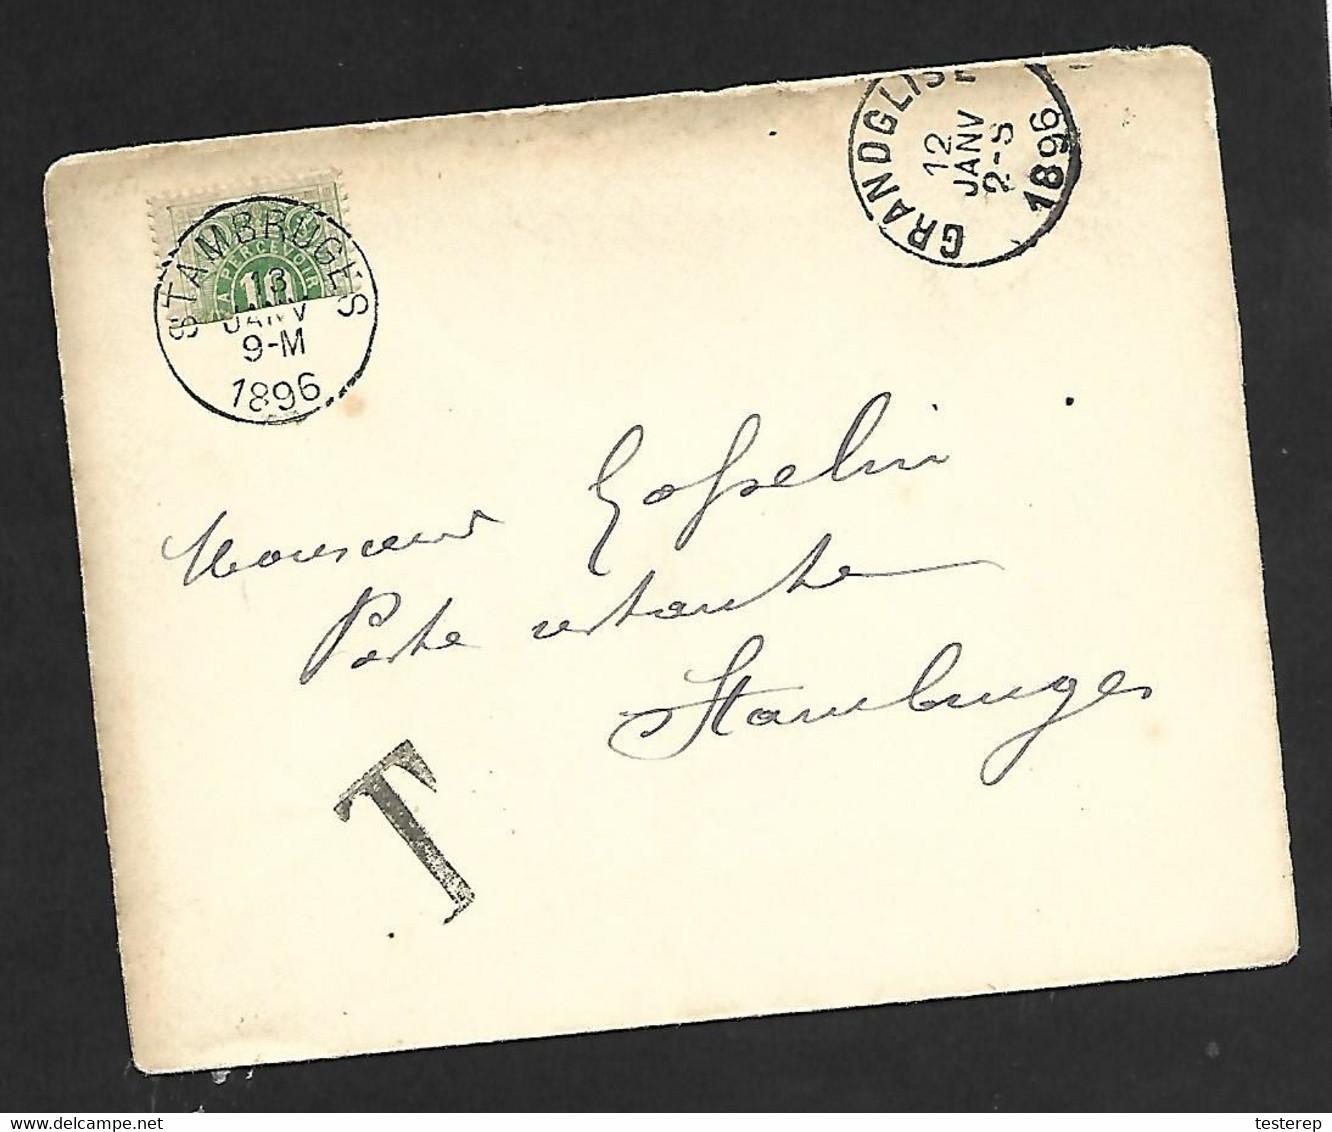 STAMBRUGES
A PERCEVOIR
10
13
JANV
9-M
1896
GRANDGLISE
12
JANV
2-S
1896
Monsieur Gosselin
Poste restante
Stambruges
T
delcampe.net
testerep